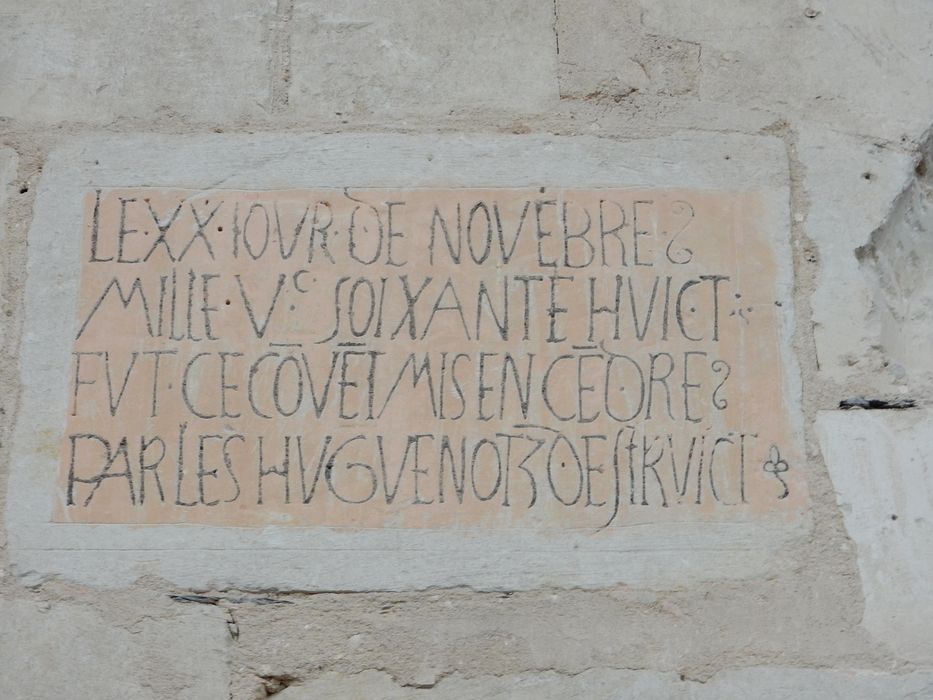 LE·XX·IOVR·DE NOVĒBRE
MILLE Vᶜ SOIXANTE HVICT
FVT·CE CŌVĒT MIS EN CĒDRE
PAR LES HVGVENOTZ DESTRVICT